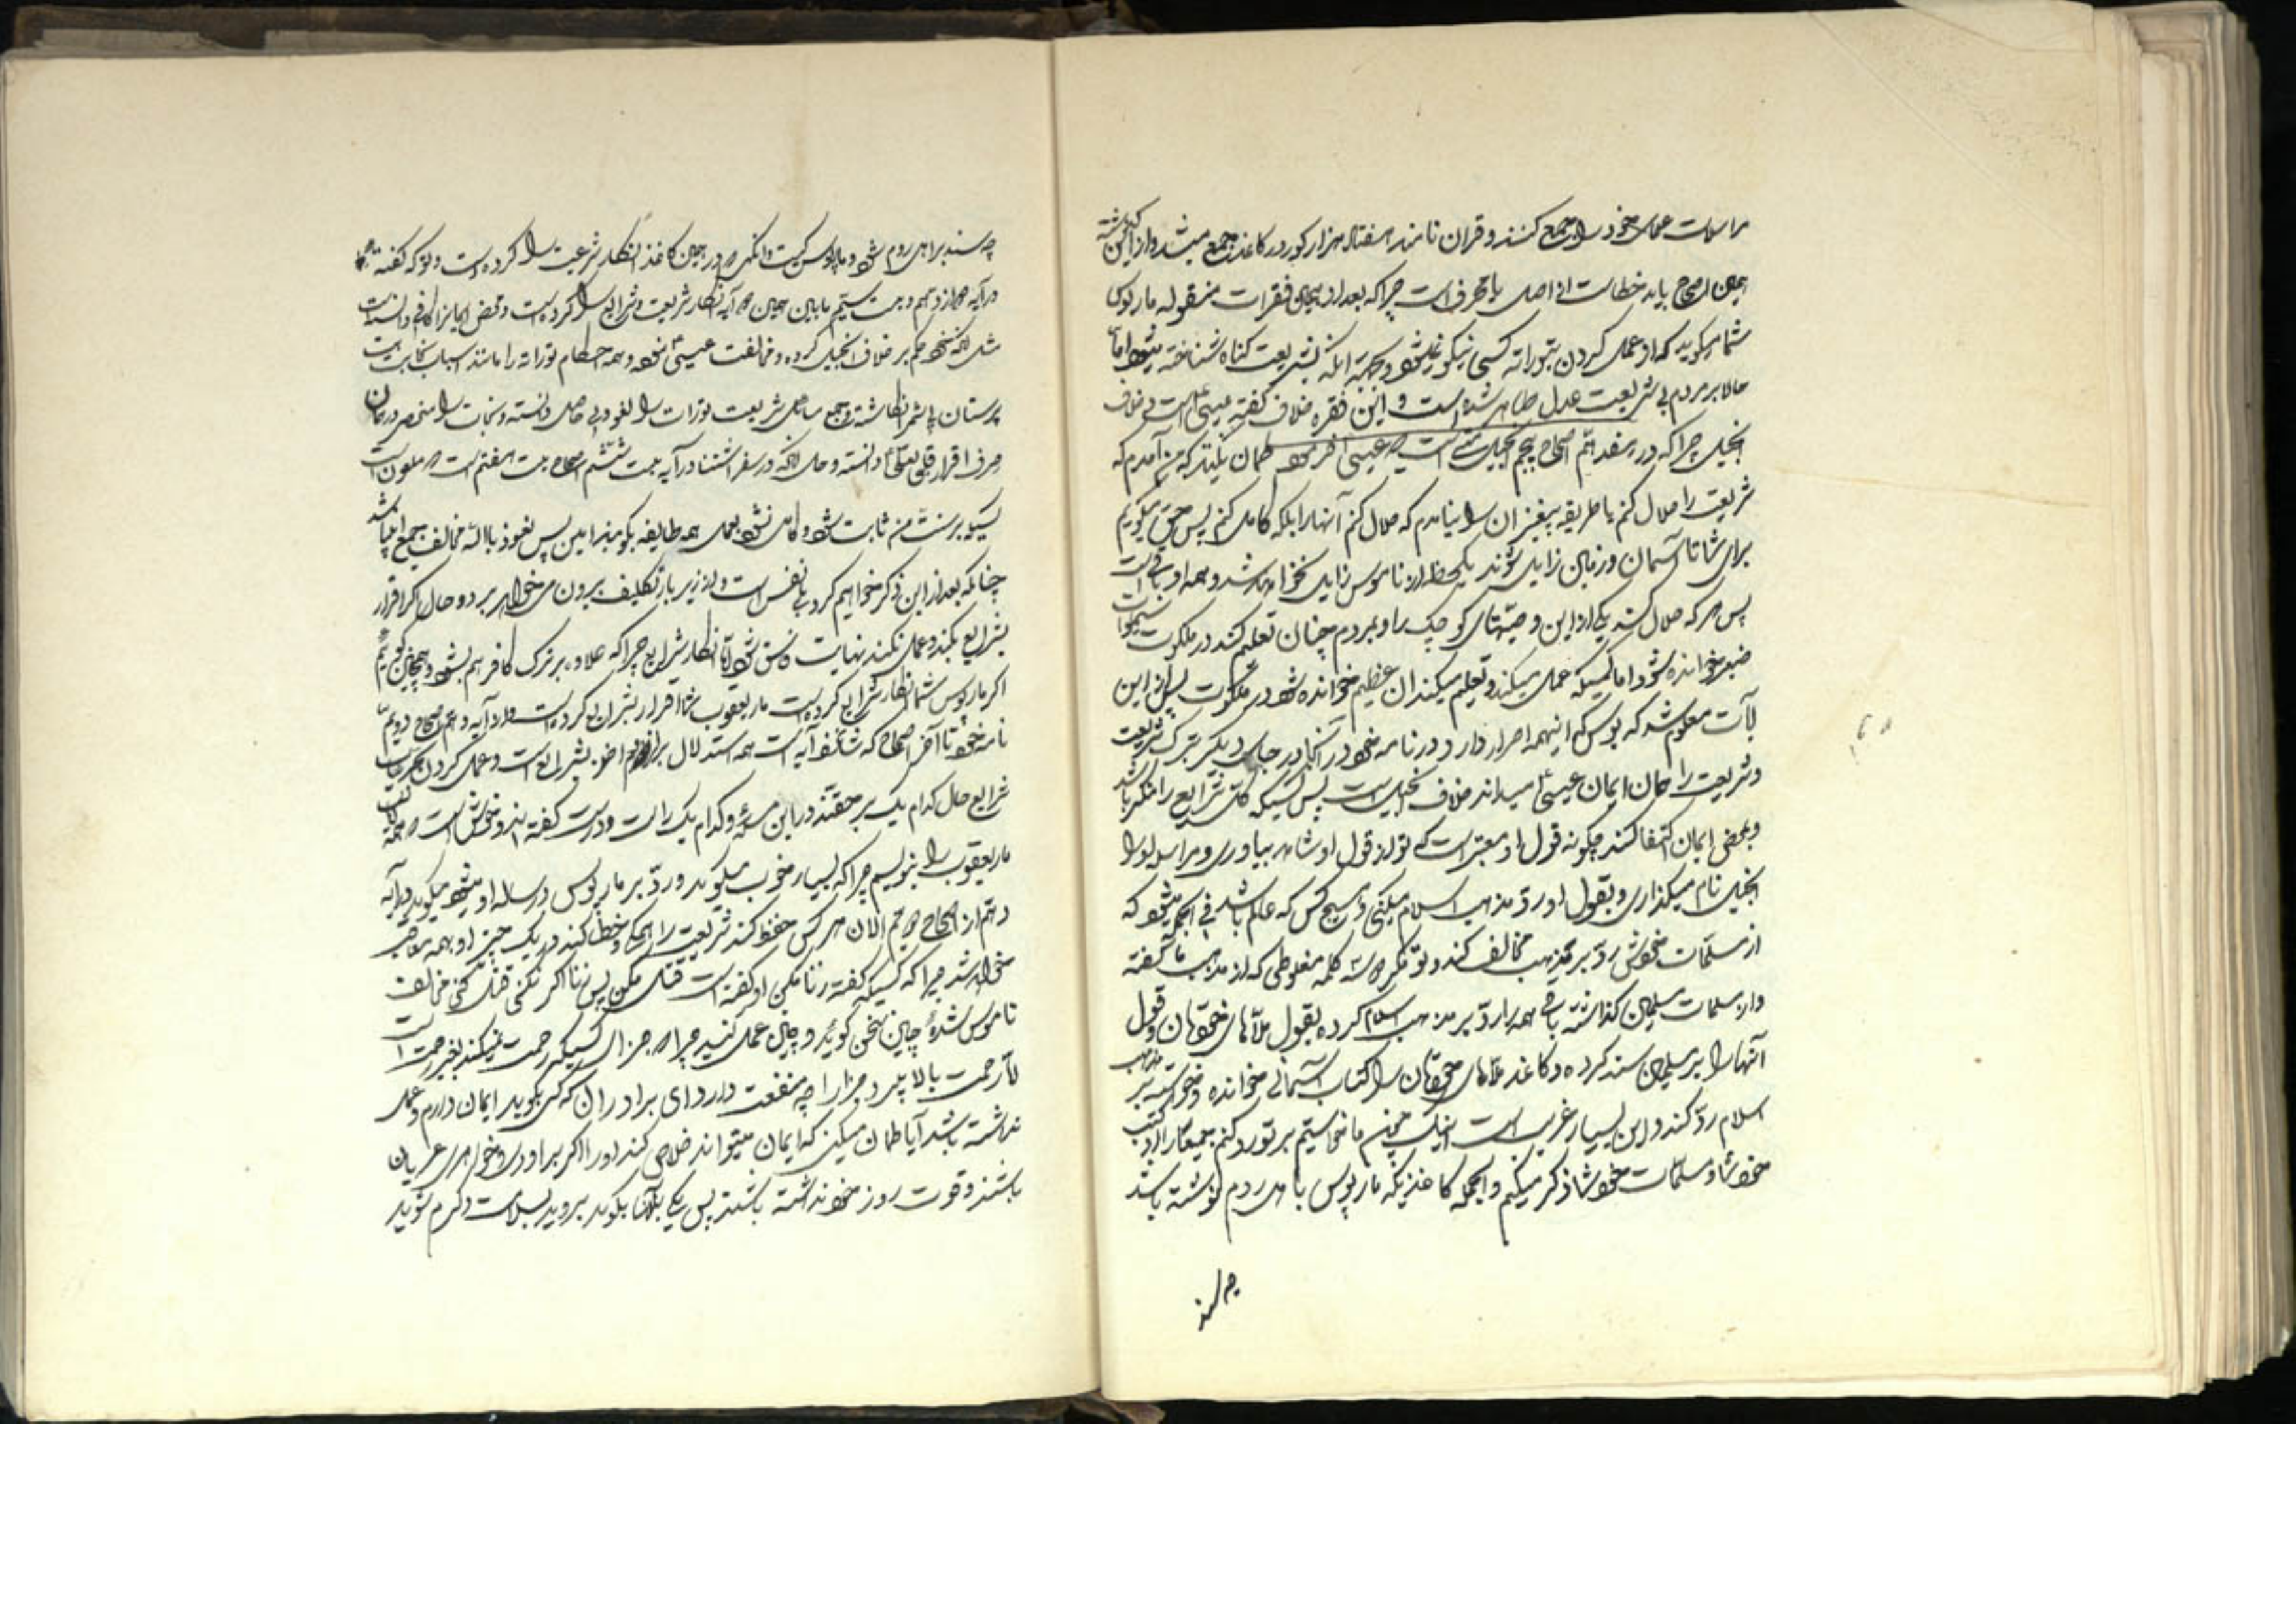 مراسلات عملی خود را جمع کنند و قران نامند هفتاد هزار کرور در کاغذ جمع میشد و از این گذشته
همین اصحاح باید خطا است از اصل یا تحریف است چراکه بعد از همین فقرات منقوله مار پولس
شما میکوید که از عمل کردن بتوراة کسی نیکو نمیشود و بجهة اینکه بشریعت کناه شناخته میشود اما
حالا بر مردم بی شریعت عدل ظاهر شده است و این فقره خلاف کفته عیسی است و خلاف
انجیل چراکه در هفدهم اصحاح پنجم انجیل متی است که عیسی فرموده کمان نکنید که من آمدم که
شریعت را حلال کنم یا طریقه پیغمبران را نیامدم که حلال کنم آنها را بلکه کامل کنم پس بحق میکویم
برای شما تا آسمان و زمین زایل شوند یک خط از ناموس زایل نخواهد شد و همه او باقی است
پس هر که حلال کند یکی از این وصیتهای کوچک را و بمردم چنان تعلیم کند در ملکوت سموات
صغیر خوانده شود اما کسیکه عمل میکند و تعلیم میکند آن عظیم خوانده شود در ملکوت پس از این
آیات معلوم شد که پولس که اینهمه اصرار دارد در نامه خود در آنجا و در جای دیکر بترک شریعت
و شریعت را همان ایمان عیسی میداند خلاف انجیل است پس کسیکه کل شرایع را منکر باشد
و بمحض ایمان اکتفا کند چکونه قول او معتبر است که تو از قول او شاهد بیاوری و مراسله او را
انجیل نام میکذاری و بقول او رد مذهب اسلام میکنی و هیچ کس که عالم باشد فی الجمله میشود که
از مسلمات خویش رد بر مذهب مخالف کند و تو مکر سه کلمه مغلوطی که از مذهب ما کفته
و از مسلمات مسلمین کذاشته باقی همه را رد بر مذهب اسلام کرده بقول ملاهای خودتان و قول
آنها را بر مسلمین سند کرده و کاغذ ملاهای خودتان را کتاب آسمانی خوانده و خواسته بر مذهب
اسلام رد کند و این بسیار غریب است اینک چنین ما خواستیم بر تو رد کنم جمیعا از کتب
خود شما و مسلمات خود شما ذکر میکنیم و بالجمله کاغذیکه مار پولس باهل روم نوشته باشد
چه سند
چه سند بر اهل روم شود و مار پولس کیست وانکهی که در همین کاغذ انکار شریعت را کرده است و
در آیه دوازدهم و بیست سیم ما بین همین دو آیه انکار شریعت و شرایع را کرده است و محض ایمان را کافی دانسته است
مثل آنکه خود حکم بر خلاف انجیل کرده و مخالفت عیسی نموده و همه احکام توراة را مانند اسباب بت
پرستان بی ثمر انکاشته و جمع ما حصل شریعت تورات را لغو و بی حاصل دانسته و نجات را منحصر در ایمان
صرف اقرار قلبی بعیسی دانسته و حال آنکه در سفر استثنا در آیه بیست ششم اصحاح بیست هفتم است که ملعون است
کسیکه بر سنت من ثابت نشود و کامل نشود بعمل همه طایفه بکویند امین پس نعوذ بالله مخالف جمیع انبیا شد
چنانکه بعد از این ذکر خواهیم کرد بی نفس است و از زیر بار تکلیف بیرون میخواهد برد و حال اکر اقرار
بشرایع بکند و عمل نکند نهایت فاسق شود اما انکار شرایع چراکه علاوه بر ترک کافر هم بشود و همچنین کوئیم
اکر مار پولس شما انکار شرایع کرده است مار یعقوب شما اقرار بشرایع کرده است و از آیه دهم اصحاح دویم
نامه خود تا آخر اصحاح که آیه است همه استدلال بر اخذ بشرایع است و عمل کردن بمجرد
شرایع حال کدام یک بر حقند در این مسئله و کدام یک راست و درست کفته اند و خوش است که همه
مار یعقوب را بنویسیم چراکه بسیار خوب میکوید و رد بر مار پولس در رساله او میشود میکوید در آیه
دهم از اصحاح دویم الان هر کس حفظ کند شریعت را همکی و خطا کند در یک چیز او بهمه مواخذ
خواهد شد چراکه کسیکه کفته زنا مکن او کفته است قتل مکن پس زنا اکر نکنی قتل کنی مخالف
ناموس شده چنین سخن کوئید و چنین عمل کنید چراکه جزای کسیکه رحمت نمیکند بغیر رحمت است
لان رحمت بالا میبرد جزا را چه منفعت دارد ای برادران که کسی بکوید ایمان دارم و عمل
نداشته باشد آیا کمان میکنید که ایمان میتواند خلاص کند او را اکر برادری و خواهری عریان
باشند و قوت روز خود نداشته باشند پس یکی بآنها بکوید بروید بسلامت و کرم شوید